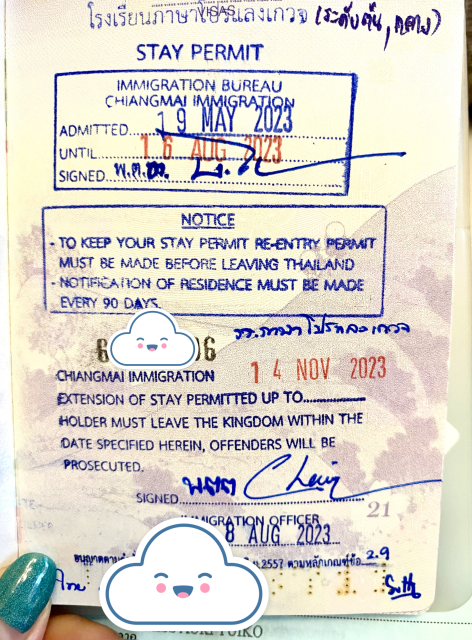 VISAS
โรงเรียนภาษาโปรแลงเกวจ (ระดับต้น, กลาง)
STAY PERMIT
IMMIGRATION BUREAU
CHIANGMAI IMMIGRATION
ADMITTED 19 MAY 2023
UNTIL 16 AUG 2023
SIGNED พ.ต.
NOTICE
- TO KEEP YOUR STAY PERMIT RE-ENTRY PERMIT
MUST BE MADE BEFORE LEAVING THAILAND
- NOTIFICATION OF RESIDENCE MUST BE MADE
EVERY 90 DAYS.
รร.ภาษาโปรแลงเกวจ
6 06
CHIANGMAI IMMIGRATION 14 NOV 2023
EXTENSION OF STAY PERMITTED UP TO
HOLDER MUST LEAVE THE KINGDOM WITHIN THE
DATE SPECIFIED HEREIN, OFFENDERS WILL BE
PROSECUTED.
SIGNED
IMMIGRATION OFFICER
21
8 AUG 2023
2557 ตามหลักเกณฑ์ข้อ 2.9